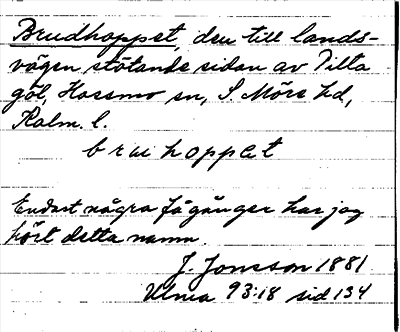 Brudhoppet, den till lands-
vägen stötande sidan av Tilta
göl, Hossmo sn, S Möre hd,
Kalm. l.
bruhoppet
Endast några få gånger har jag
hört detta namn.
J. Jonsson 1881
Ulma 93:18 sid 134